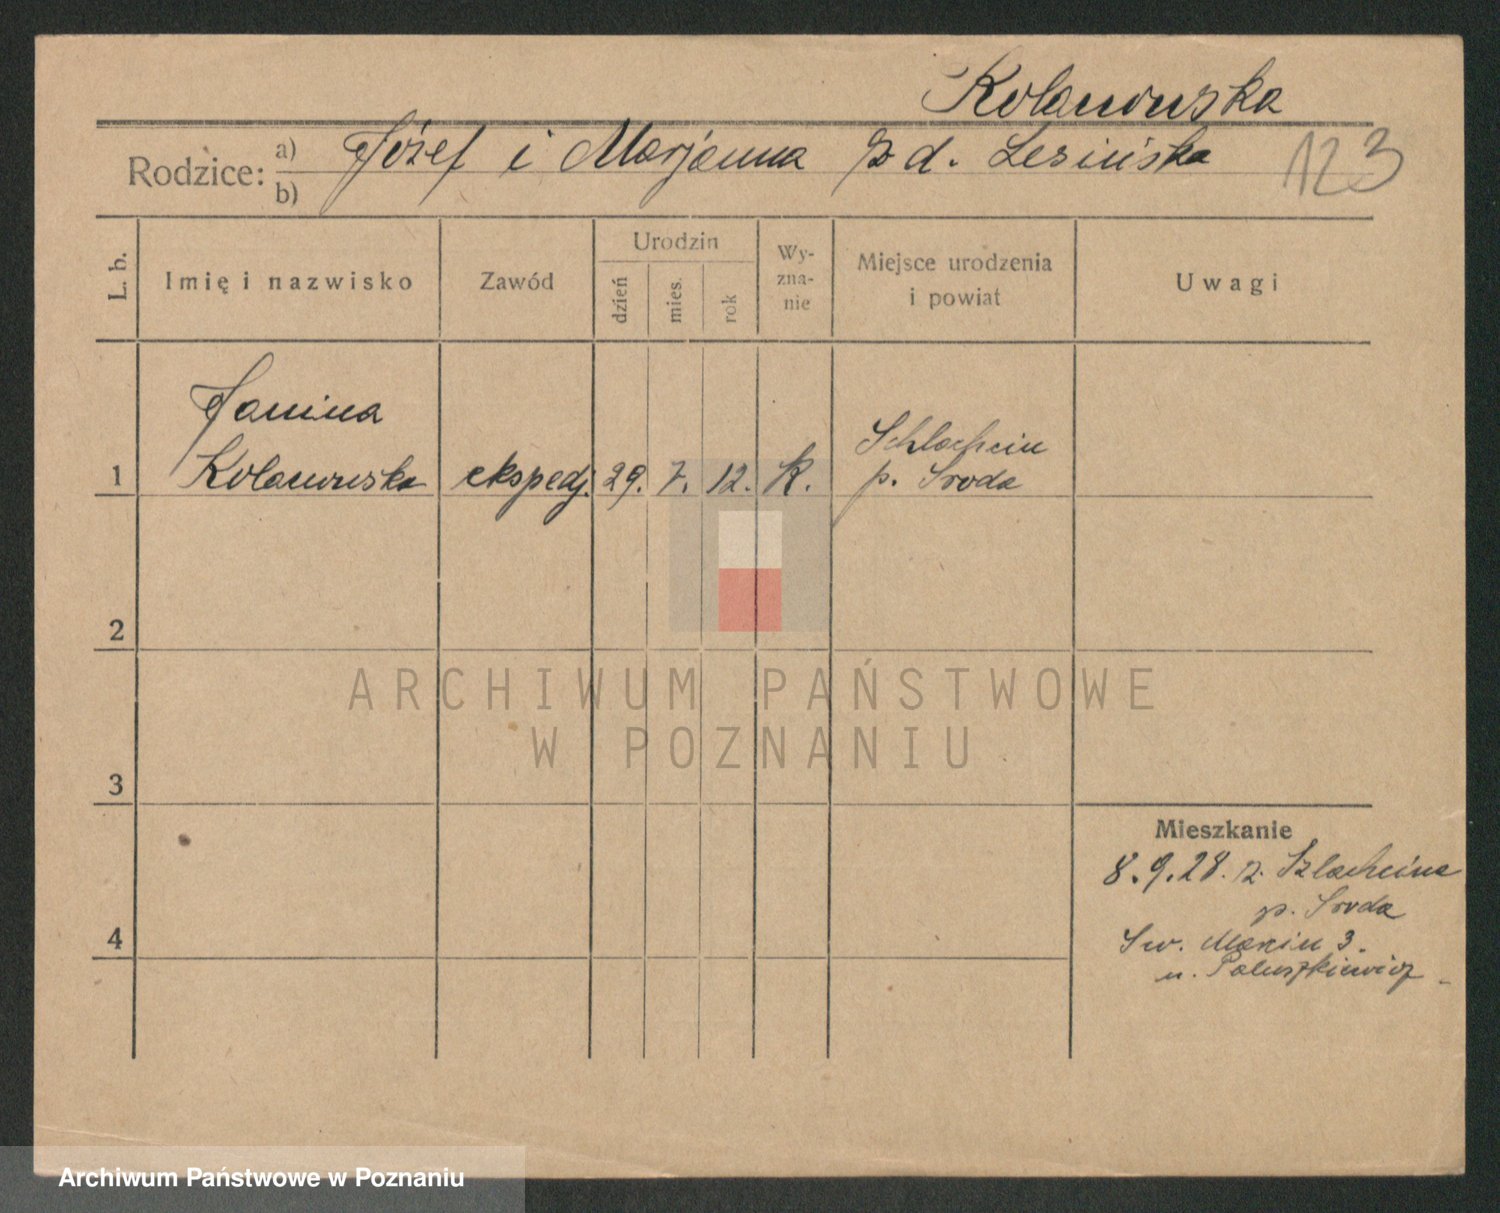 Kolanowska
Rodzice: a) Józef i Marjanna z d. Lesińska 123
b)
L. b. Imię i nazwisko Zawód Urodzin dzień mies. rok Wy-zna-nie Miejsce urodzenia i powiat Uwagi
Janina Schlachcin
1 Kolanowska ekspedj. 29. 7. 12. K. p. Sroda
2
ARCHIWUM PAŃSTWOWE
W POZNANIU
3
Mieszkanie
8.9.28. z Szlachcina
p. Sroda
4 Sw. Marcin 3.
u. Paluszkiewicz
Archiwum Państwowe w Poznaniu